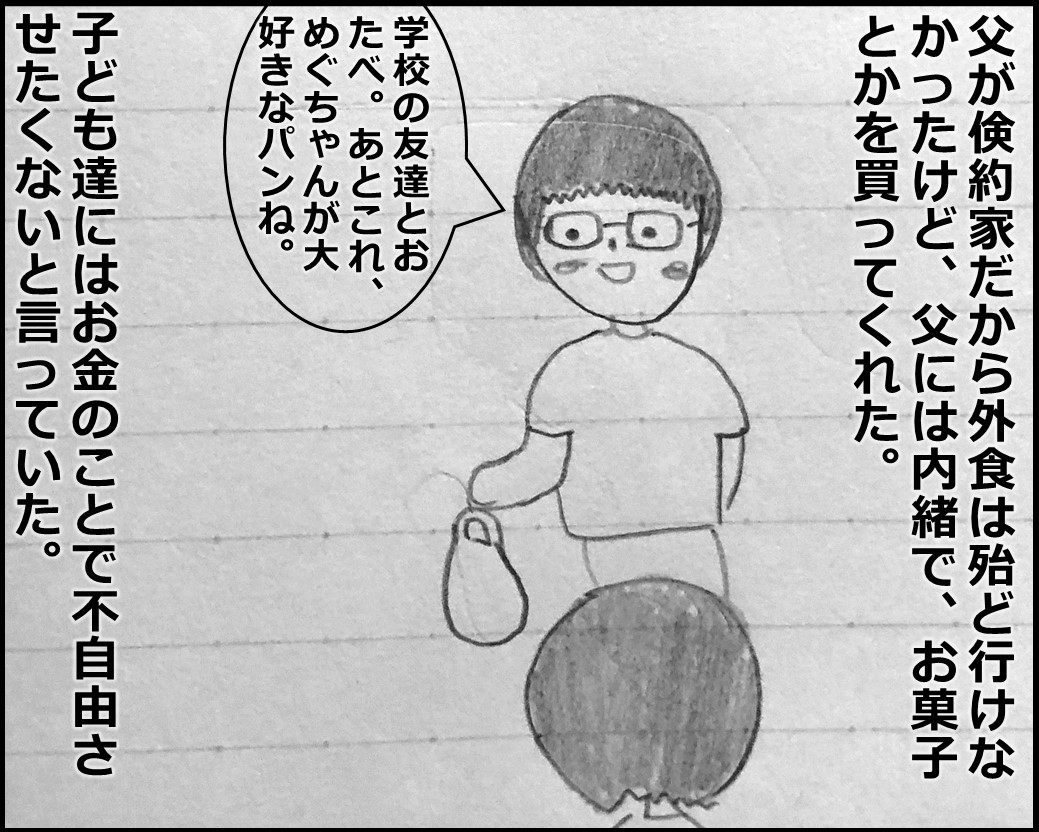 父が倹約家だから外食は殆ど行けな
かったけど、父には内緒で、お菓子
とかを買ってくれた。
学校の友達とお
たべ。あとこれ、
めぐちゃんが大
好きなパンね。
子ども達にはお金のことで不自由さ
せたくないと言っていた。